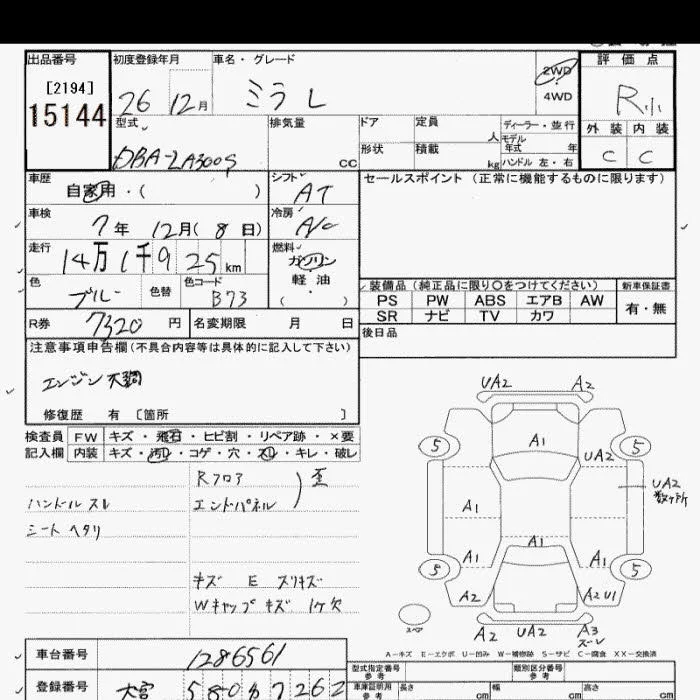 出品番号 初度登録年月 車名・グレード 評価点
[2194]
15144
26 12月 ミラ L 2WD
4WD
R小
外装 内装
C C
型式 排気量 ドア 定員 人 ディーラー・並行
モデル年式 年
DBA-LA300S cc 形状 積載 kg ハンドル 左・右
車歴 自家用・( ) シフト AT セールスポイント (正常に機能するものに限ります)
車検 7年 12月(8日) 冷房 A/C
走行 14万1千925km 燃料 ガソリン
軽油
( ・ )
色 ブルー 色替 色コード B73
装備品 (純正品に限り〇をつけてください) 新車保証書
PS PW ABS エアB AW 有・無
SR ナビ TV カワ
R券 7320円 名変期限 月 日
後日品
注意事項申告欄(不具合内容等は具体的に記入して下さい)
エンジン不調
修復歴 有 〔箇所 〕
検査員 FW キズ・飛石・ヒビ割・リペア跡・×要
記入欄 内装 キズ・汚レ・コゲ・穴・スレ・キレ・破レ
Rフロア
エンドパネル ) 歪
ハンドル スレ
シート ヘタリ
キズ E スリキズ
Wキャップ キズ 1ケ欠
UA2 A2
5 A1 5
UA2
UA2
数ヶ所
A1
A1 A1 A1
5 5
A2 A2 U1
スペア
A2 UA2 A3
ズレ
A-キズ E-エクボ U-凹み W-補修跡 S-サビ C-腐食 XX-交換済
車台番号 1286561
型式指定番号 参考 類別区分番号 参考
登録番号 大宮 580 カ 7262
車庫証明用 参考 長さ cm 幅 cm 高さ cm